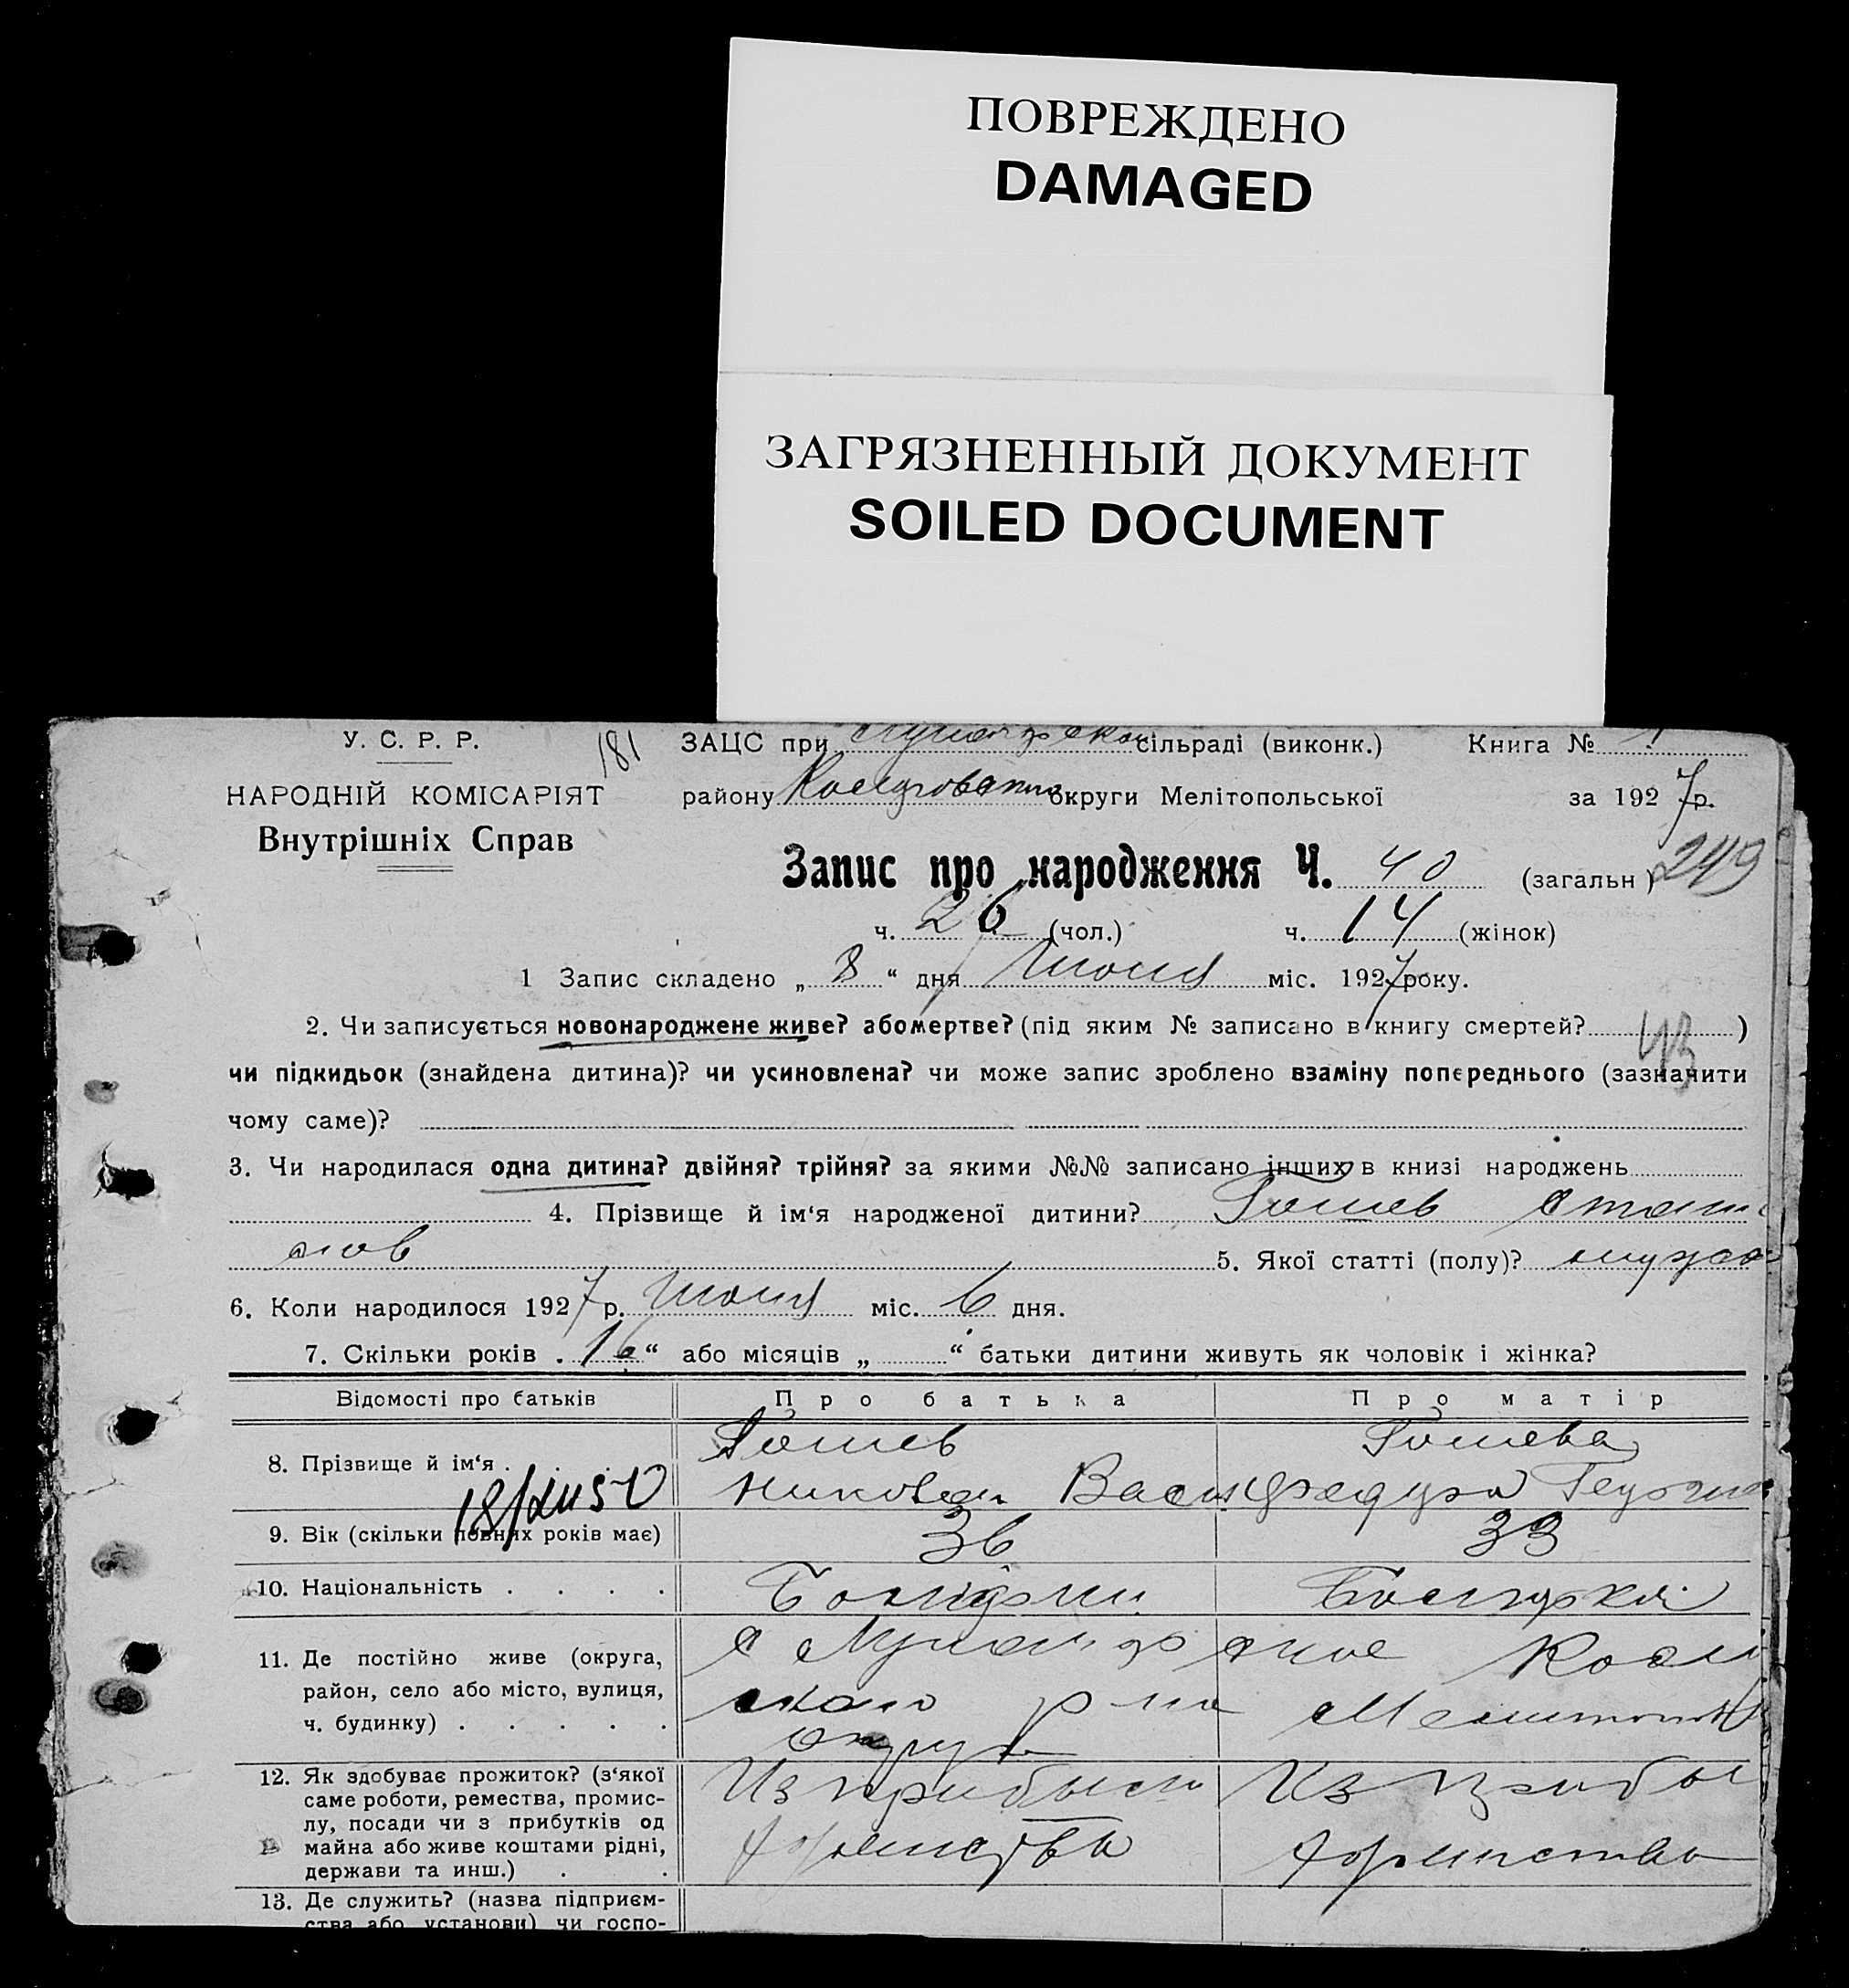 ПОВРЕЖДЕНО
DAMAGED
ЗАГРЯЗНЕННЫЙ ДОКУМЕНТ
SOILED DOCUMENT
У. С. Р. Р. 181 ЗАЦС при сільраді (виконк.) Книга № 1
НАРОДНІЙ КОМІСАРІЯТ району округи Мелітопольської за 1927 р.
Внутрішніх Справ
Запис про народження Ч. 40 (загальн.) 249
ч. 26 (чол.) ч. 14 (жінок)
1 Запис складено „ 8 “ дня Июня міс. 1927 року.
2. Чи записується новонароджене живе? або мертве? (під яким № записано в книгу смертей? )
чи підкидьок (знайдена дитина)? чи усиновлена? чи може запис зроблено взаміну попереднього (зазначити
чому саме)?
3. Чи народилася одна дитина? двійня? трійня? за якими №№ записано інших в книзі народжень
4. Прізвище й ім‘я народженої дитини? Гошев Стани
слов 5. Якої статті (полу)? мужс
6. Коли народилося 1927 р. Июня міс. 6 дня.
7. Скільки років . 16 “ або місяців „ “ батьки дитини живуть як чоловік і жінка?
Відомості про батьків Про батька Про матір
8. Прізвище й ім‘я . Гошев Гошева
Николай
9. Вік (скільки повних років має) 36 33
10. Національність . . . .
11. Де постійно живе (округа,
район, село або місто, вулиця,
ч. будинку) . . . . . округа
12. Як здобуває прожиток? (з‘якої
саме роботи, ремества, промис-
лу, посади чи з прибутків од
майна або живе коштами рідні,
держави та инш.) . .
13. Де служить? (назва підприєм-
ства або установи) чи госпо-